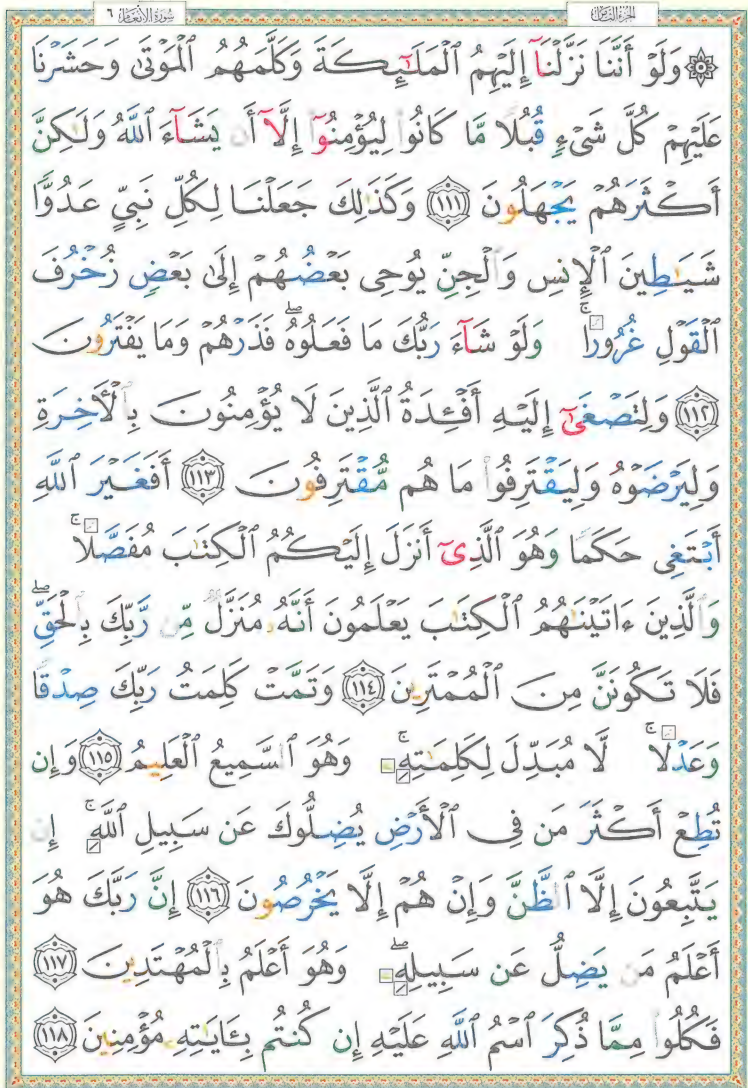 سُورَةُ الْأَنْعَامِ ٦
الجُزْءُ الثَّامِنُ
۞ وَلَوْ أَنَّنَا نَزَّلْنَآ إِلَيْهِمُ ٱلْمَلَـٰٓئِكَةَ وَكَلَّمَهُمُ ٱلْمَوْتَىٰ وَحَشَرْنَا
عَلَيْهِمْ كُلَّ شَىْءٍ قُبُلًا مَّا كَانُوا۟ لِيُؤْمِنُوٓا۟ إِلَّآ أَن يَشَآءَ ٱللَّهُ وَلَـٰكِنَّ
أَكْثَرَهُمْ يَجْهَلُونَ ﴿١١١﴾ وَكَذَٰلِكَ جَعَلْنَا لِكُلِّ نَبِىٍّ عَدُوًّا
شَيَـٰطِينَ ٱلْإِنسِ وَٱلْجِنِّ يُوحِى بَعْضُهُمْ إِلَىٰ بَعْضٍ زُخْرُفَ
ٱلْقَوْلِ غُرُورًا ۚ وَلَوْ شَآءَ رَبُّكَ مَا فَعَلُوهُ ۖ فَذَرْهُمْ وَمَا يَفْتَرُونَ
﴿١١٢﴾ وَلِتَصْغَىٰٓ إِلَيْهِ أَفْـِٔدَةُ ٱلَّذِينَ لَا يُؤْمِنُونَ بِٱلْـَٔاخِرَةِ
وَلِيَرْضَوْهُ وَلِيَقْتَرِفُوا۟ مَا هُم مُّقْتَرِفُونَ ﴿١١٣﴾ أَفَغَيْرَ ٱللَّهِ
أَبْتَغِى حَكَمًا وَهُوَ ٱلَّذِىٓ أَنزَلَ إِلَيْكُمُ ٱلْكِتَـٰبَ مُفَصَّلًا ۚ
وَٱلَّذِينَ ءَاتَيْنَـٰهُمُ ٱلْكِتَـٰبَ يَعْلَمُونَ أَنَّهُۥ مُنَزَّلٌ مِّن رَّبِّكَ بِٱلْحَقِّ ۖ
فَلَا تَكُونَنَّ مِنَ ٱلْمُمْتَرِينَ ﴿١١٤﴾ وَتَمَّتْ كَلِمَتُ رَبِّكَ صِدْقًا
وَعَدْلًا ۚ لَّا مُبَدِّلَ لِكَلِمَـٰتِهِۦ ۚ وَهُوَ ٱلسَّمِيعُ ٱلْعَلِيمُ ﴿١١٥﴾ وَإِن
تُطِعْ أَكْثَرَ مَن فِى ٱلْأَرْضِ يُضِلُّوكَ عَن سَبِيلِ ٱللَّهِ ۚ إِن
يَتَّبِعُونَ إِلَّا ٱلظَّنَّ وَإِنْ هُمْ إِلَّا يَخْرُصُونَ ﴿١١٦﴾ إِنَّ رَبَّكَ هُوَ
أَعْلَمُ مَن يَضِلُّ عَن سَبِيلِهِۦ ۖ وَهُوَ أَعْلَمُ بِٱلْمُهْتَدِينَ ﴿١١٧﴾
فَكُلُوا۟ مِمَّا ذُكِرَ ٱسْمُ ٱللَّهِ عَلَيْهِ إِن كُنتُم بِـَٔايَـٰتِهِۦ مُؤْمِنِينَ ﴿١١٨﴾